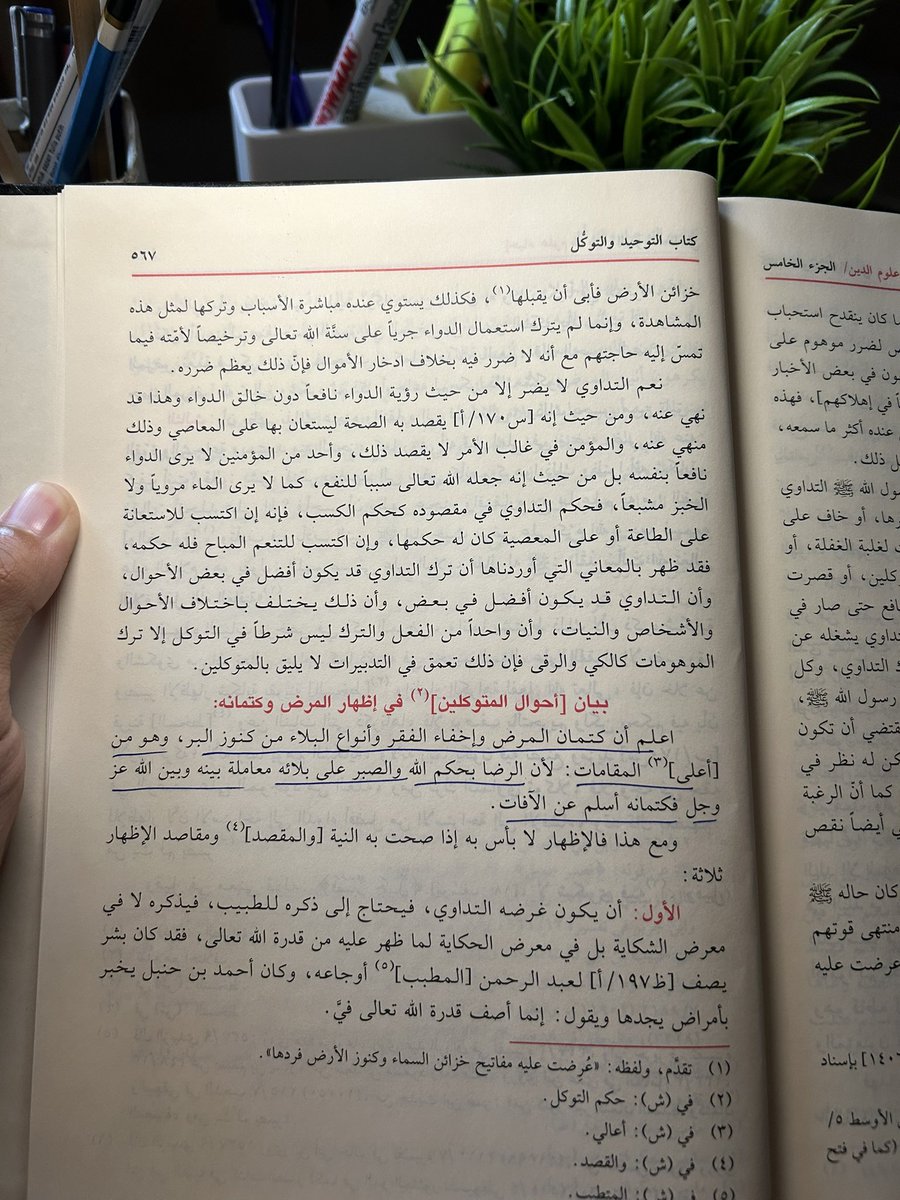 كتاب التوحيد والتوكُّل
٥٦٧
خزائن الأرض فأبى أن يقبلها(١)، فكذلك يستوي عنده مباشرة الأسباب وتركها لمثل هذه
المشاهدة، وإنما لم يترك استعمال الدواء جرياً على سنَّة الله تعالى وترخيصاً لأمّته فيما
تمسّ إليه حاجتهم مع أنه لا ضرر فيه بخلاف ادخار الأموال فإنّ ذلك يعظم ضرره.
نعم التداوي لا يضر إلا من حيث رؤية الدواء نافعاً دون خالق الدواء وهذا قد
نهي عنه، ومن حيث إنه [س١٧٠/أ] يقصد به الصحة ليستعان بها على المعاصي وذلك
منهي عنه، والمؤمن في غالب الأمر لا يقصد ذلك، وأحد من المؤمنين لا يرى الدواء
نافعاً بنفسه بل من حيث إنه جعله الله تعالى سبباً للنفع، كما لا يرى الماء مروياً ولا
الخبز مشبعاً، فحكم التداوي في مقصوده كحكم الكسب، فإنه إن اكتسب للاستعانة
على الطاعة أو على المعصية كان له حكمها، وإن اكتسب للتنعم المباح فله حكمه،
فقد ظهر بالمعاني التي أوردناها أن ترك التداوي قد يكون أفضل في بعض الأحوال،
وأن التداوي قد يكون أفضل في بعض، وأن ذلك يختلف باختلاف الأحوال
والأشخاص والنيات، وأن واحداً من الفعل والترك ليس شرطاً في التوكل إلا ترك
الموهومات كالكي والرقى فإن ذلك تعمق في التدبيرات لا يليق بالمتوكلين.
بيان [أحوال المتوكلين](٢) في إظهار المرض وكتمانه:
اعلم أن كتمان المرض وإخفاء الفقر وأنواع البلاء من كنوز البر، وهو من
[أعلى](٣) المقامات: لأن الرضا بحكم الله والصبر على بلائه معاملة بينه وبين الله عز
وجل فكتمانه أسلم عن الآفات.
ومع هذا فالإظهار لا بأس به إذا صحت به النية [والمقصد](٤) ومقاصد الإظهار
ثلاثة:
الأول: أن يكون غرضه التداوي، فيحتاج إلى ذكره للطبيب، فيذكره لا في
معرض الشكاية بل في معرض الحكاية لما ظهر عليه من قدرة الله تعالى، فقد كان بشر
يصف [ظ١٩٧/أ] لعبد الرحمن [المطبب](٥) أوجاعه، وكان أحمد بن حنبل يخبر
بأمراض يجدها ويقول: إنما أصف قدرة الله تعالى فيَّ.
(١) تقدَّم، ولفظه: «عُرِضت عليه مفاتيح خزائن السماء وكنوز الأرض فردها».
(٢) في (ش): حكم التوكل.
(٣) في (ش): أعالي.
(٤) في (ش): والقصد.
(٥) في (ش): المتطبب.
علوم الدين/ الجزء الخامس
ما كان ينقدح استحباب
لضرر موهوم على
في بعض الأخبار
في إهلاكهم]، فهذه
عنده أكثر ما سمعه،
ذلك.
رسول الله ﷺ التداوي
أو خاف على
لغلبة الغفلة، أو
أو قصرت
حتى صار في
يشغله عن
التداوي، وكل
رسول الله ﷺ،
أن تكون
له نظر في
كما أنّ الرغبة
أيضاً نقص
كان حاله ﷺ
منتهى قوتهم
عرضت عليه
بإسناد
الأوسط ٥/
(كما في فتح